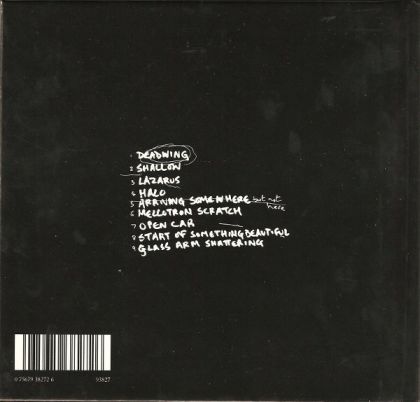 1 DEADWING
2 SHALLOW
3 LAZARUS
4 HALO
5 ARRIVING SOMEWHERE but not here
6 MELLOTRON SCRATCH
7 OPEN CAR
8 START OF SOMETHING BEAUTIFUL
9 GLASS ARM SHATTERING
0 75679 38272 6 93827